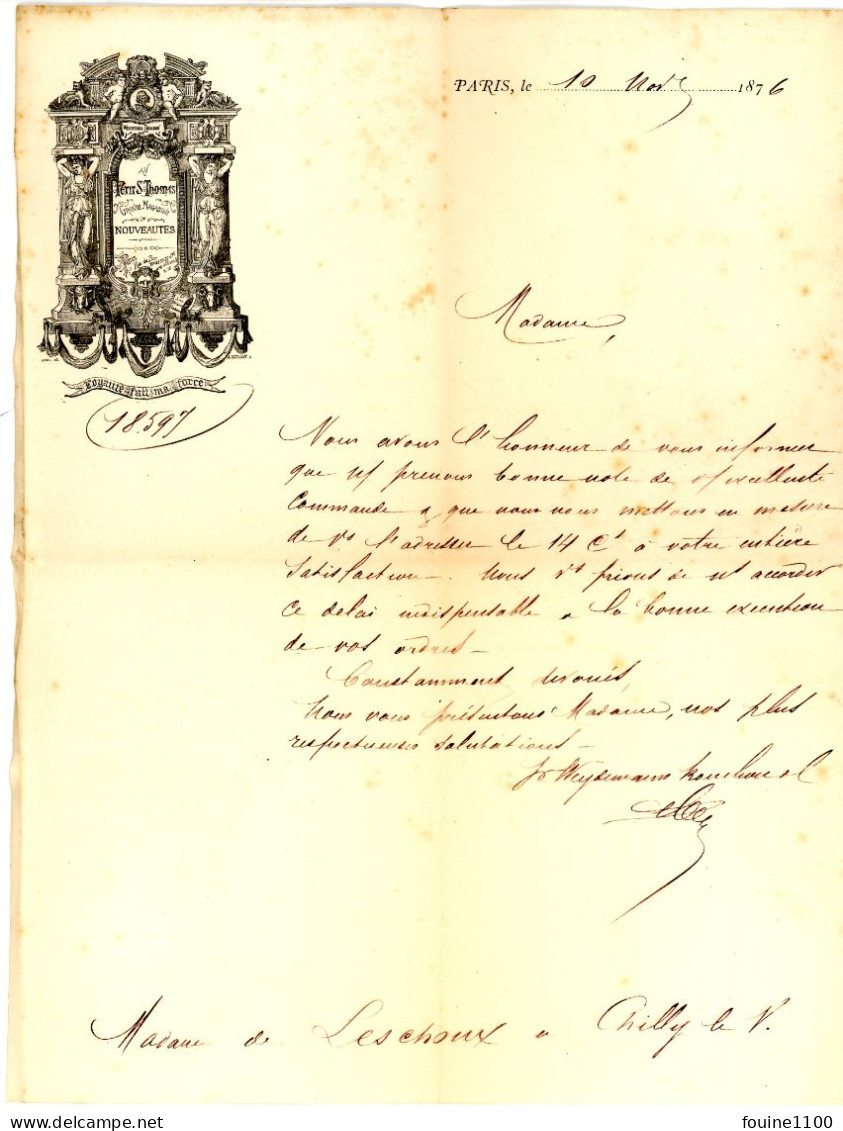 PARIS, le 10 Nov 1876
AU
PETIT ST THOMAS
GRANDS MAGASINS
DE
NOUVEAUTÉS
Loyauté fait ma force
18.597
Madame,
Nous avons l'honneur de vous informer
que n/ prenons bonne note de v/ excellente
commande & que nous nous mettons en mesure
de vs l'adresser le 14 Ct à votre entière
satisfaction. Nous vs prions de ns accorder
ce delai indispensable a la bonne execution
de vos ordres –
Constamment dévoués,
Nous vous présentons Madame, nos plus
respectueuses salutations –
Weydemann
Madame de Leschoux a Chilly le V.
delcampe.net
fouine1100